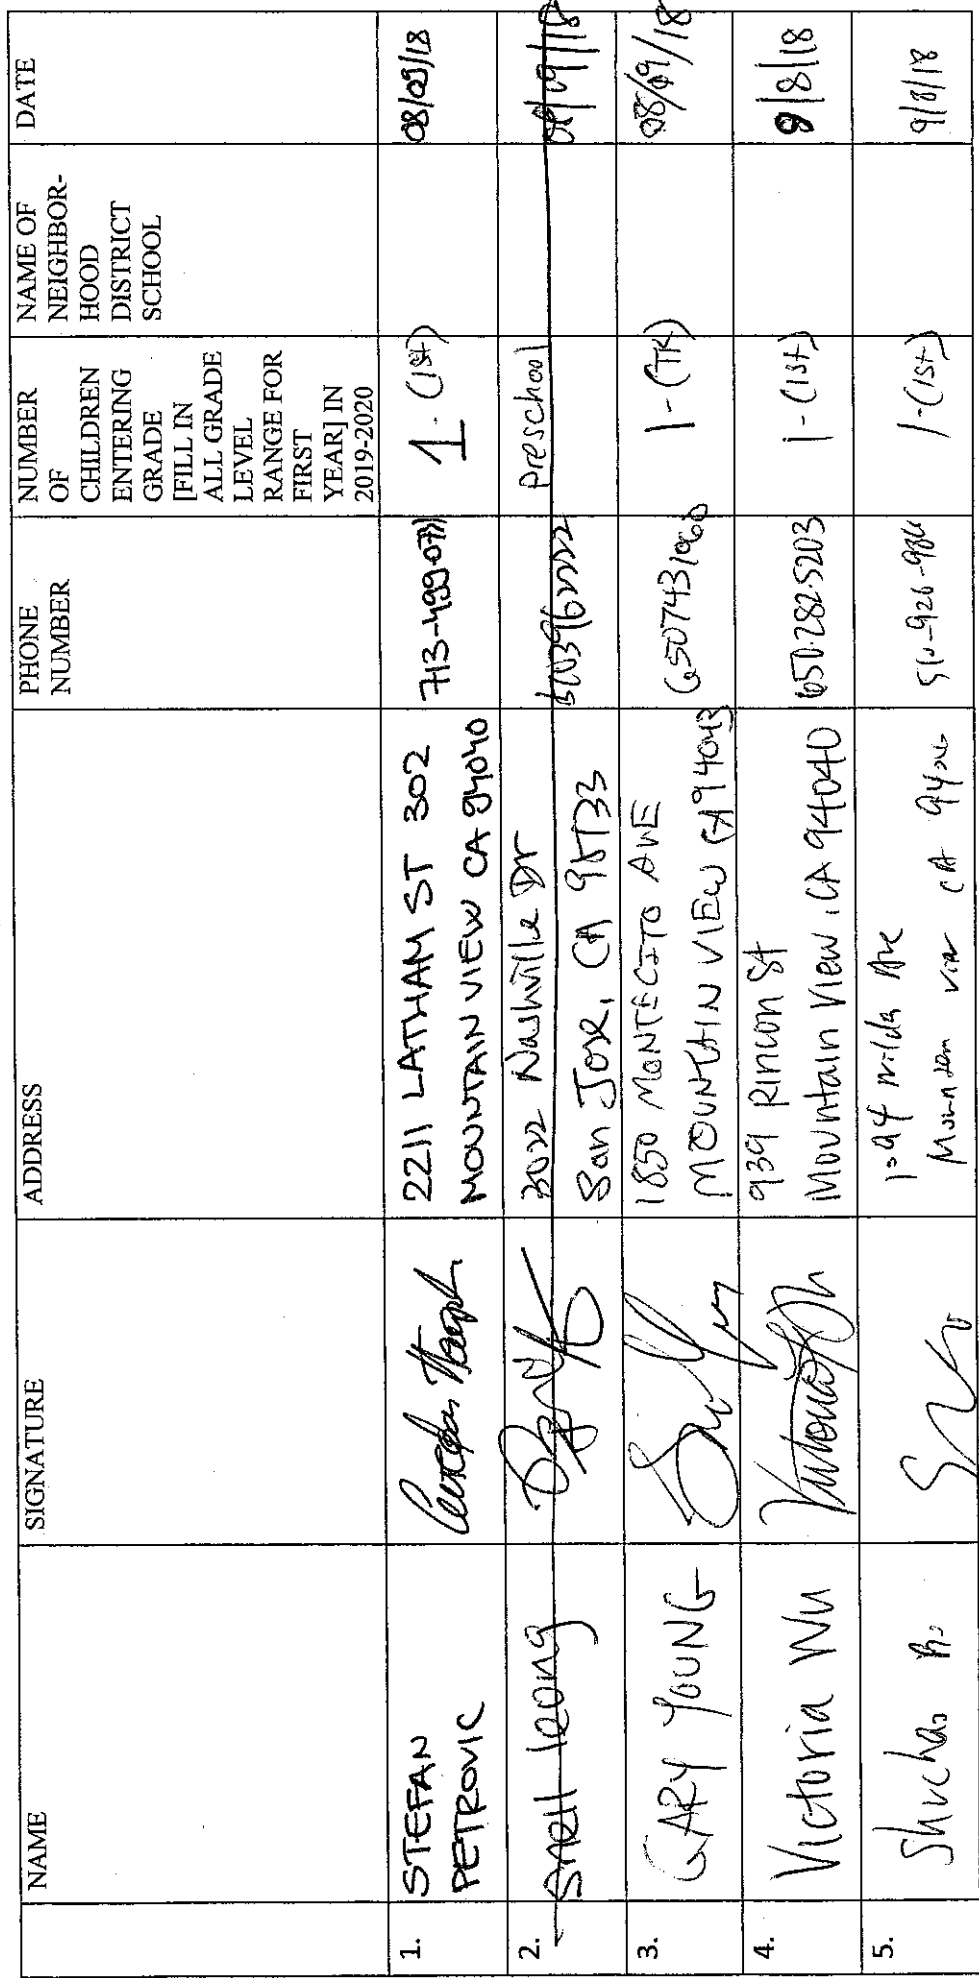 NAME
SIGNATURE
ADDRESS
PHONE
NUMBER
NUMBER
OF
CHILDREN
ENTERING
GRADE
[FILL IN
ALL GRADE
LEVEL
RANGE FOR
FIRST
YEAR] IN
2019-2020
NAME OF
NEIGHBOR-
HOOD
DISTRICT
SCHOOL
DATE
1.
STEFAN
PETROVIC
2211 LATHAM ST 302
MOUNTAIN VIEW CA 94040
713-499-0731
1 - (1st)
08/09/18
2.
Snell leong
3022 Nashville Dr
San Jose, CA 95133
preschool
08/09/18
3.
GARY YOUNG
1850 MONTECITO AVE
MOUNTAIN VIEW CA 94043
6507431060
1 - (TK)
08/09/18
4.
Victoria Wu
939 Rincon St
Mountain View, CA 94040
650-282-5203
1 - (1st)
9/8/18
5.
Shuchao
Ave
Mountain View CA
1 - (1st)
9/8/18